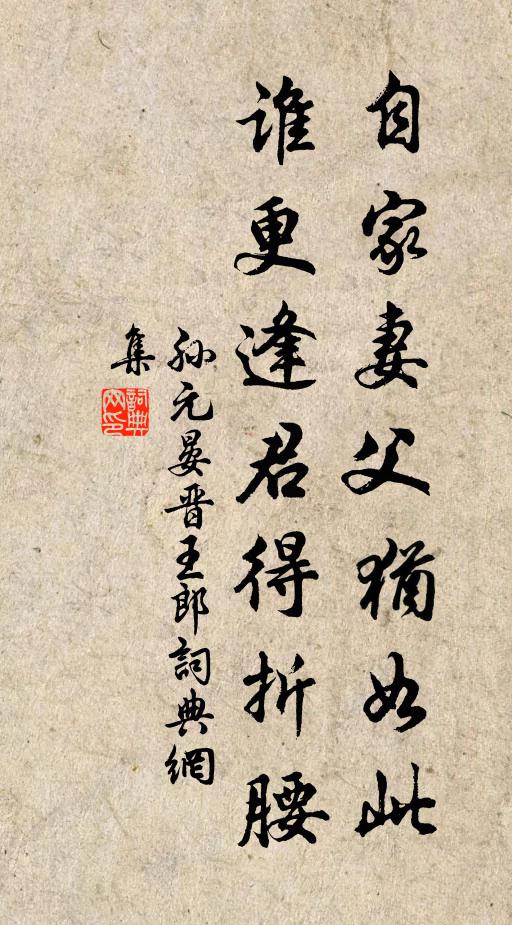 自家妻父猶如此
誰更逢君得折腰
孫元晏晋王郎詞典網
集
詞典網印